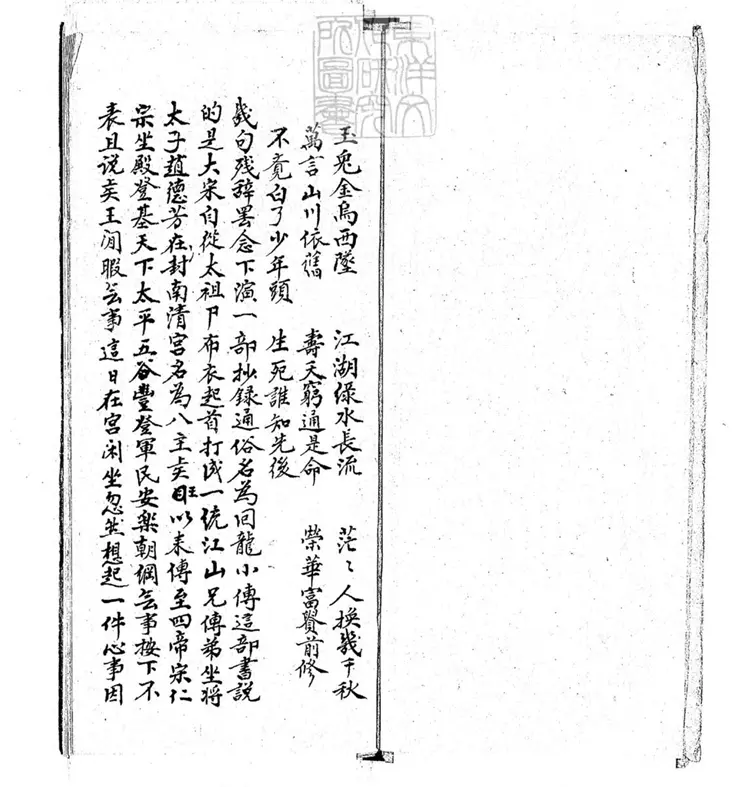 東洋文化研究所圖書
玉兔金烏西墜　江湖绿水長流　茫〻人換幾千秋
萬言山川依舊　壽夭窮通是命　榮華富貴前修
不竟白了少年頭　生死誰知先後
幾句残辞罢念下演一部抄録通俗名為回龍小傳這部書説
的是大宋自從太祖布衣起首打成一统江山兄傳弟坐将
太子趙德芳在封南清宮名為八主賢王以来傳至四帝宋仁
宗坐殿登基天下太平五谷豐登軍民安樂朝綱无事按下不
表且说賢王閒暇无事這日在宮闲坐忽然想起一件心事因